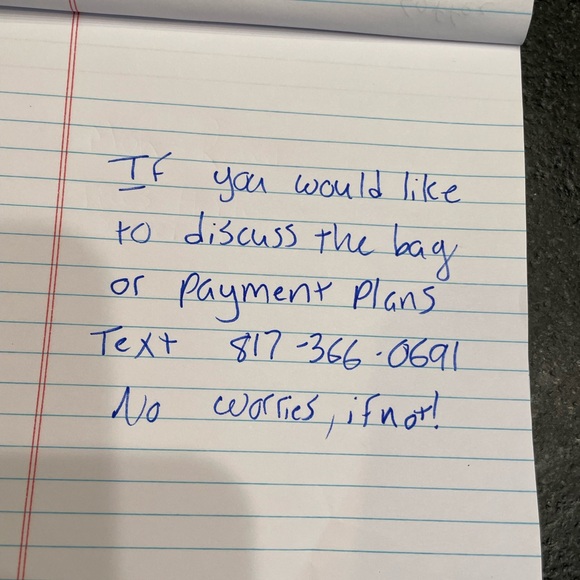 If you would like
to discuss the bag
or payment plans
Text 817-366-0691
No worries, if not!